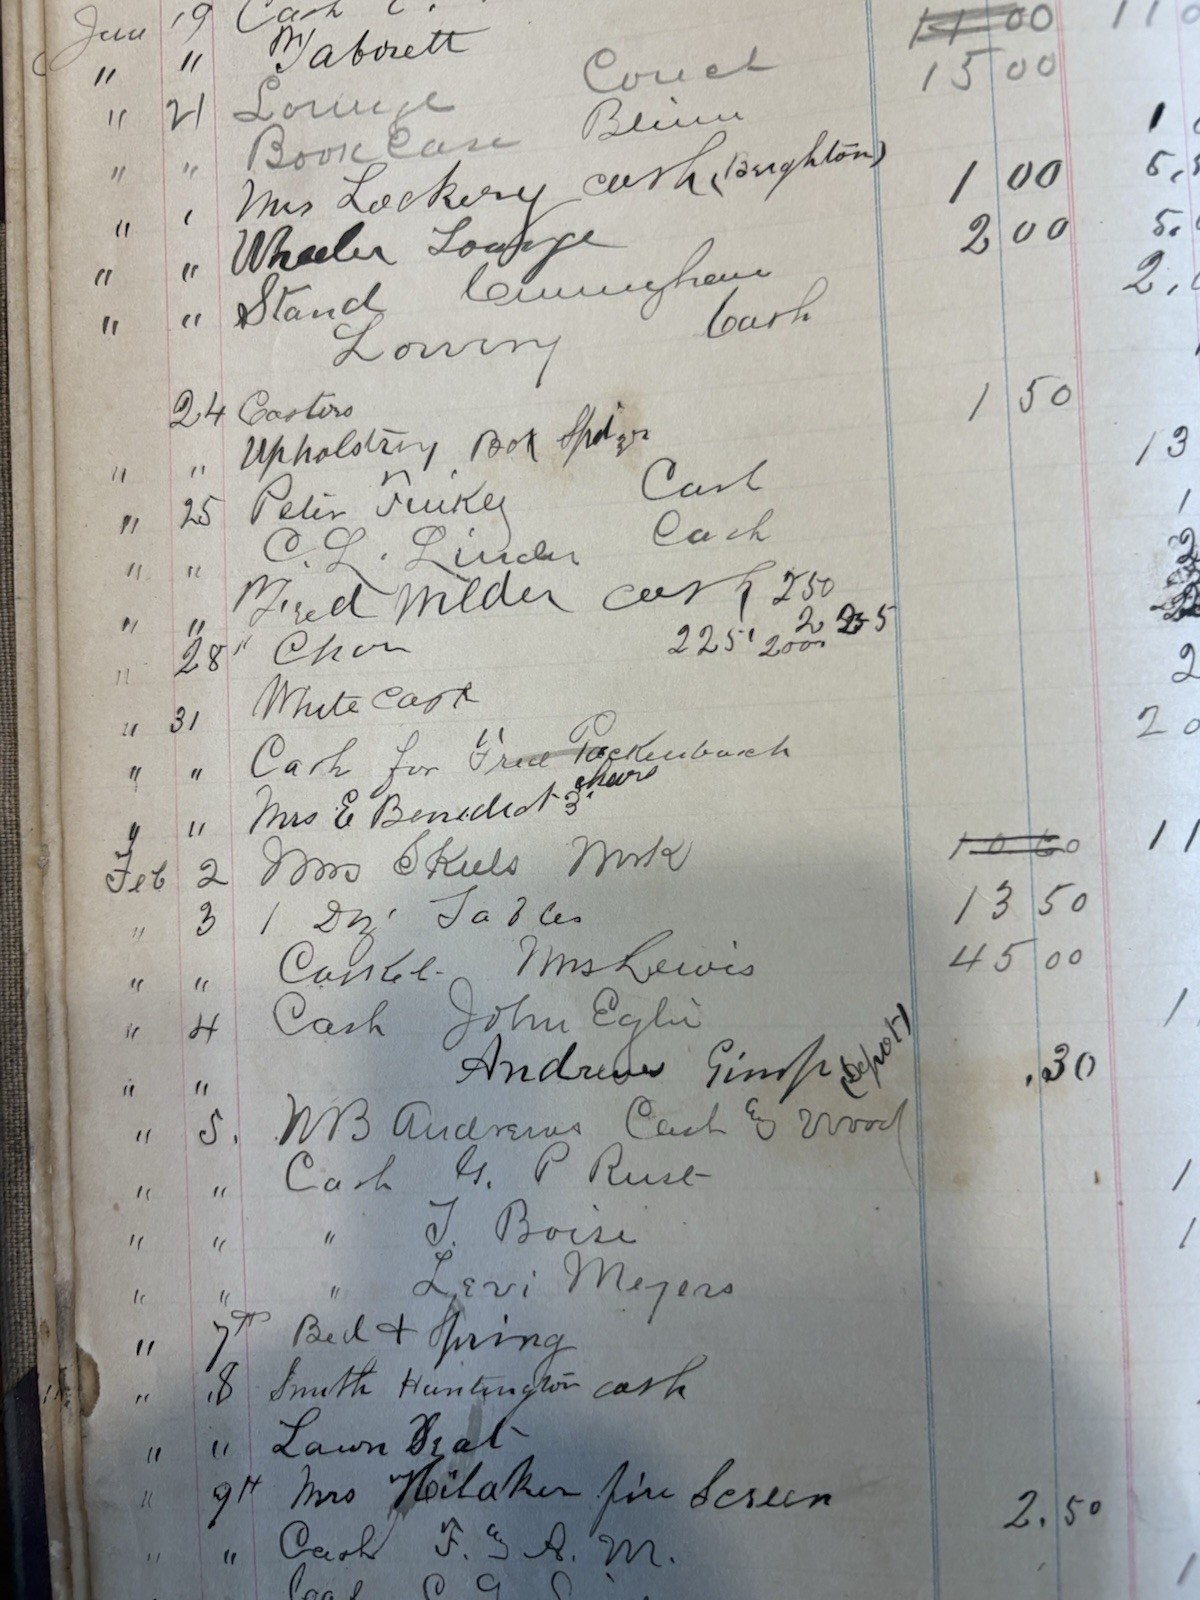 Jan 19 Cash 11 00 11
" " Taborett 15 00
" 21 Lounge Couch
" " Book Case 1
" " Mrs Lockery cash (Beighton) 1 00 5.
" " Wheeler Lounge 2 00 5.
" " Stand Cunningham 2.
Lowery Cash
24 Castors 1 50
" " Upholstry Box 13
" 25 Peter Cash 1
" " C. L. Linder Cash 2
" " Fred Wilder cash 250
" 28 " Chair 225 2 25 2
" 31 White cash 20
" " Cash for Fred Packenbusch
" " Mrs E Benedict 3 chairs
Feb 2 Mrs Skeels Work 10 60 11
" 3 1 Dz. Tables 13 50
" " Casket Mrs Lewis 45 00
" 4 Cash John Eglin 1
" " Andrews Gimp (Depot) .30
" 5. W B Andrews Cash & Wood
" " Cash G. P Rust 1
" " " T. Boise 1
" " " Levi Meyers
" 7th Bed + Spring
" 8 Smith Huntington cash
" " Lawn Seat
" 9th Mrs fire Screen 2.50
" " Cash F. & A. M.